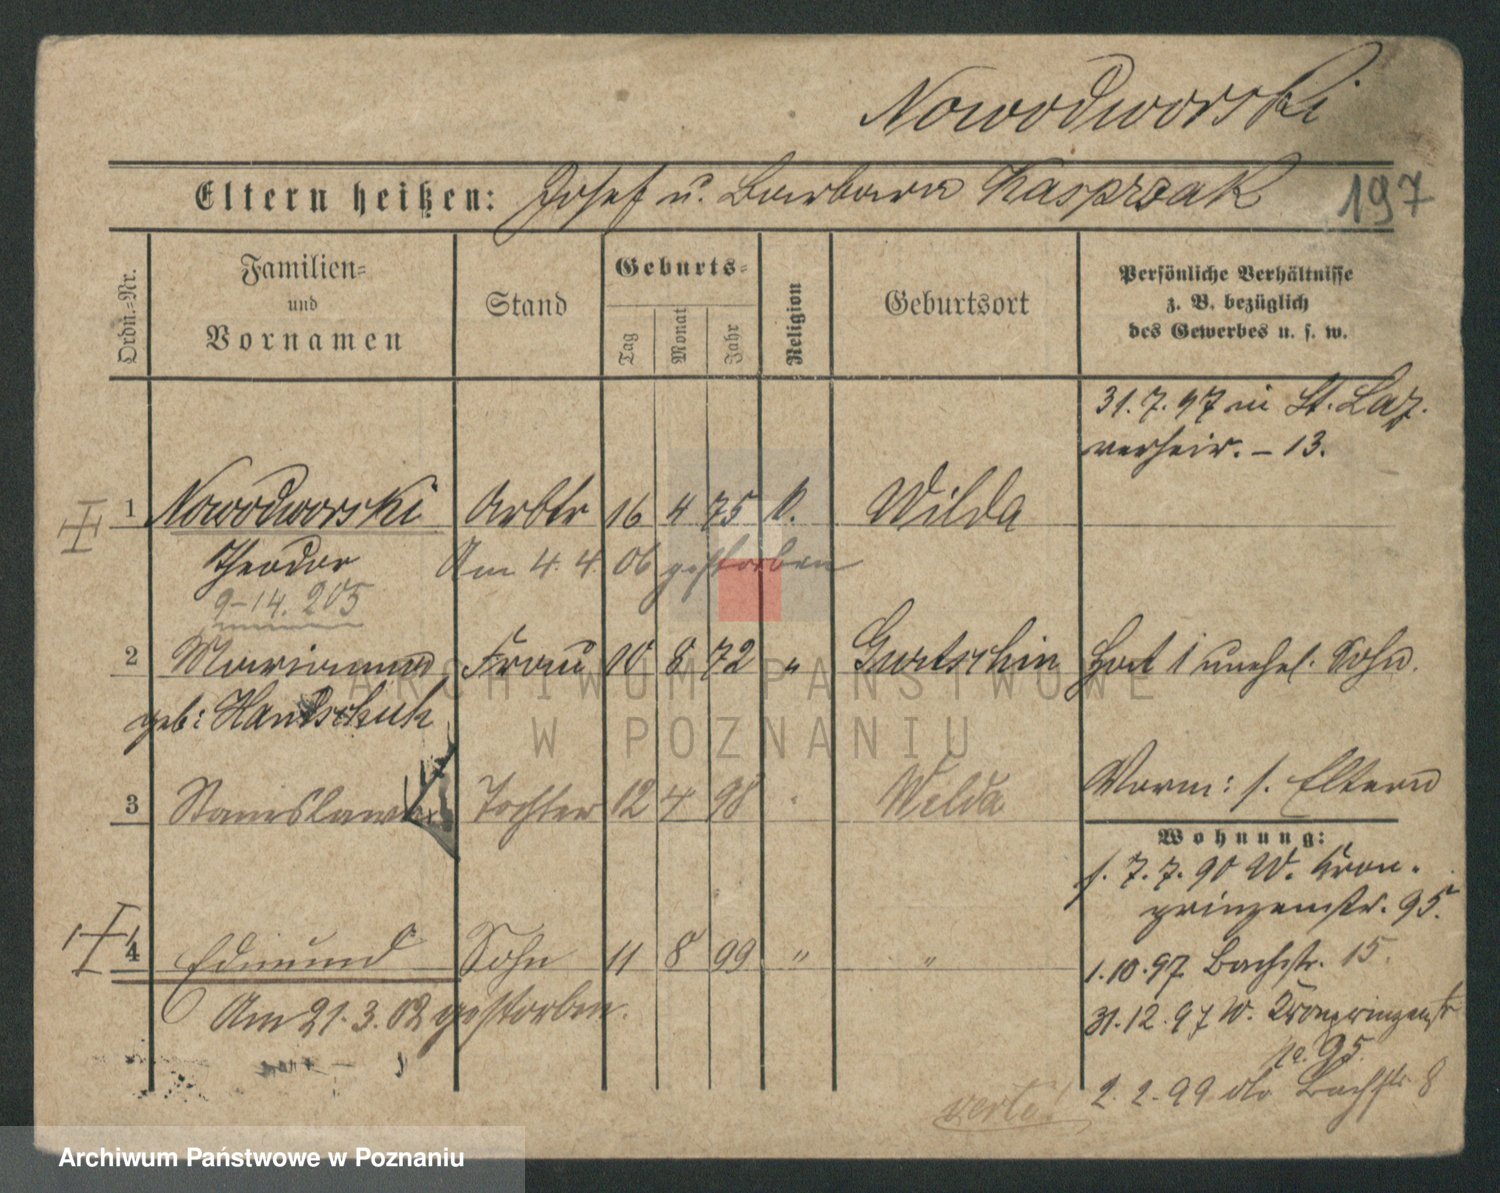 Nowodworski
Eltern heißen: Josef u. Barbara Kasprzak
197
Ordn.=Nr.
Familien=
und
Vornamen
Stand
Geburts=
Tag
Monat
Jahr
Religion
Geburtsort
Persönliche Verhältnisse
z. B. bezüglich
des Gewerbes u. s. w.
31.7.97 in St. Laz.
verheir. – 13.
1 Nowodworski Arbtr 16 4 75 k. Wilda
Theodor Am 4. 4. 06 gestorben
9-14. 205
2 Marianna Frau 10 8 72 " Gurtschin Hat 1 unehel. Sohn.
geb: Handschuh
3 Stanislawa Tochter 12 4 98 " Wilda Vorm: s. Eltern
Wohnung:
f. 7.7.90 W. Kron-
prinzenstr. 95.
4 Edmund Sohn 11 8 99 " "
1.10.97 Bachstr. 15.
Am 21.3.02 gestorben.
31.12.97 W. Kronprinzenstr
No. 95.
2.2.99 do Bachstr 8
verte!
ARCHIWUM PAŃSTWOWE
W POZNANIU
Archiwum Państwowe w Poznaniu